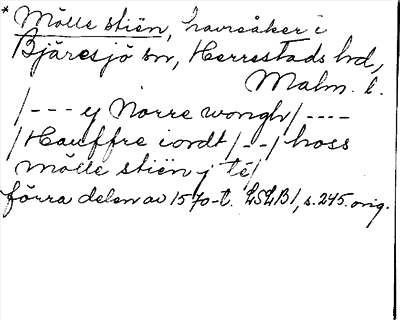 * Mölle stiën, havreåker i
Bjäresjö sn, Herrestads hd,
Malm. l.
/--- y Norre wongh/----
/Hauffre iordt/--/hoss
mölle stiën j té/
förra delen av 1570-t. LSLB1, s. 245. orig.